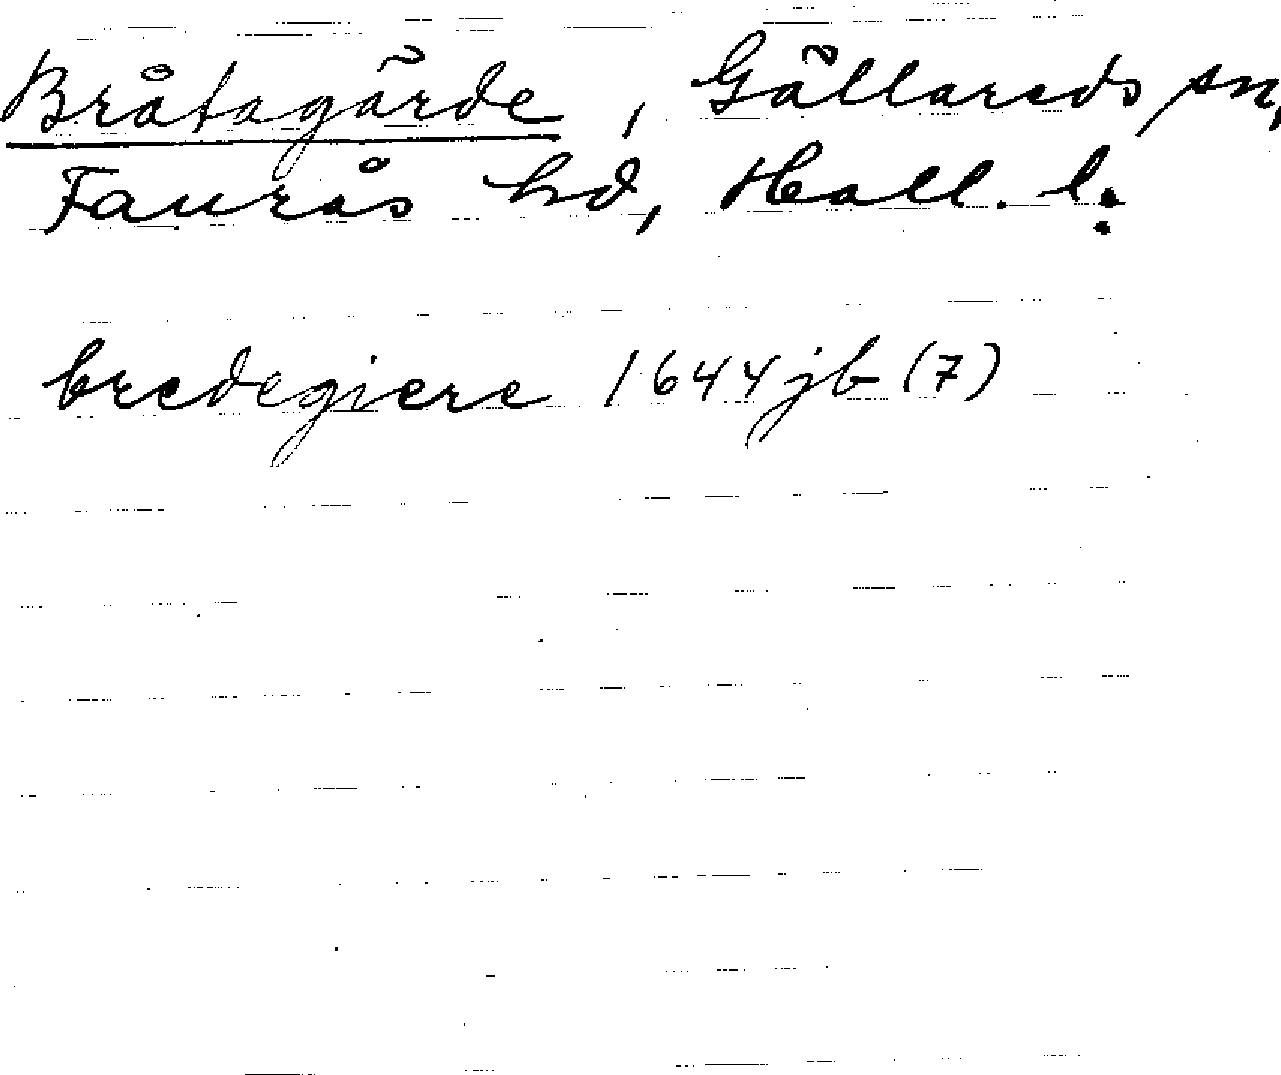 Bråtagärde, Gällareds sn,
Faurås hd, Hall. l.
bredegiere 1644 jb (7)